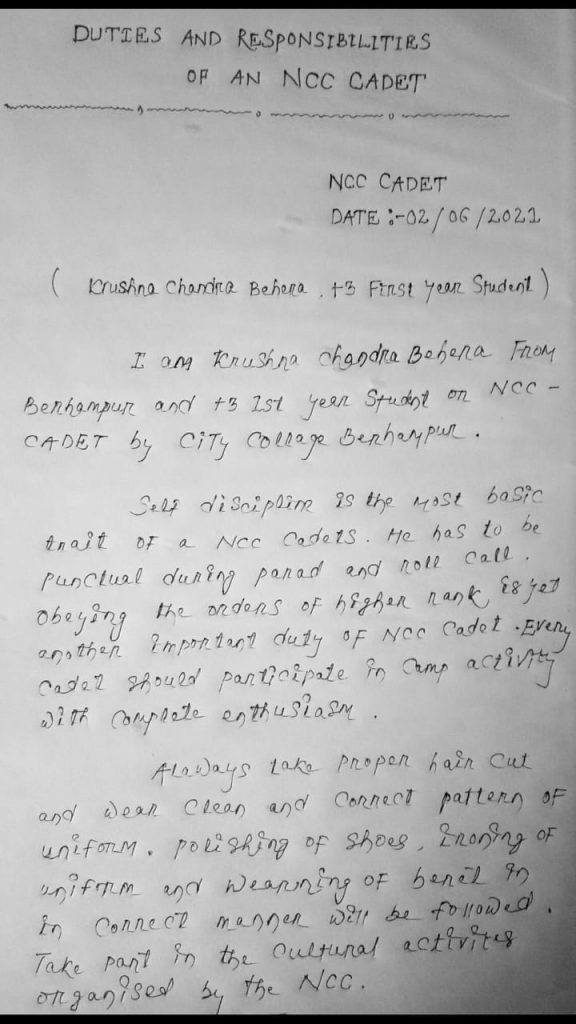 DUTIES AND RESPONSIBILITIES
OF AN NCC CADET
NCC CADET
DATE :-02/06/2021
( Krushna Chandra Behera, +3 First year Student )
I am Krushna Chandra Behera From
Berhampur and +3 1st year Student on NCC -
CADET by CITY Collage Berhampur.
Self discipline is the most basic
trait of a NCC Cadets. He has to be
punctual during parad and roll call.
obeying the orders of higher rank, is yet
another important duty of NCC Cadet. Every
cadet should participate in Camp activity
with complete enthusiasm.
Alaways take proper hair cut
and wear clean and correct pattern of
uniform. polishing of shoes, ironing of
uniform and wearning of beret in
in correct manner will be followed.
Take part in the cultural activites
organised by the NCC.